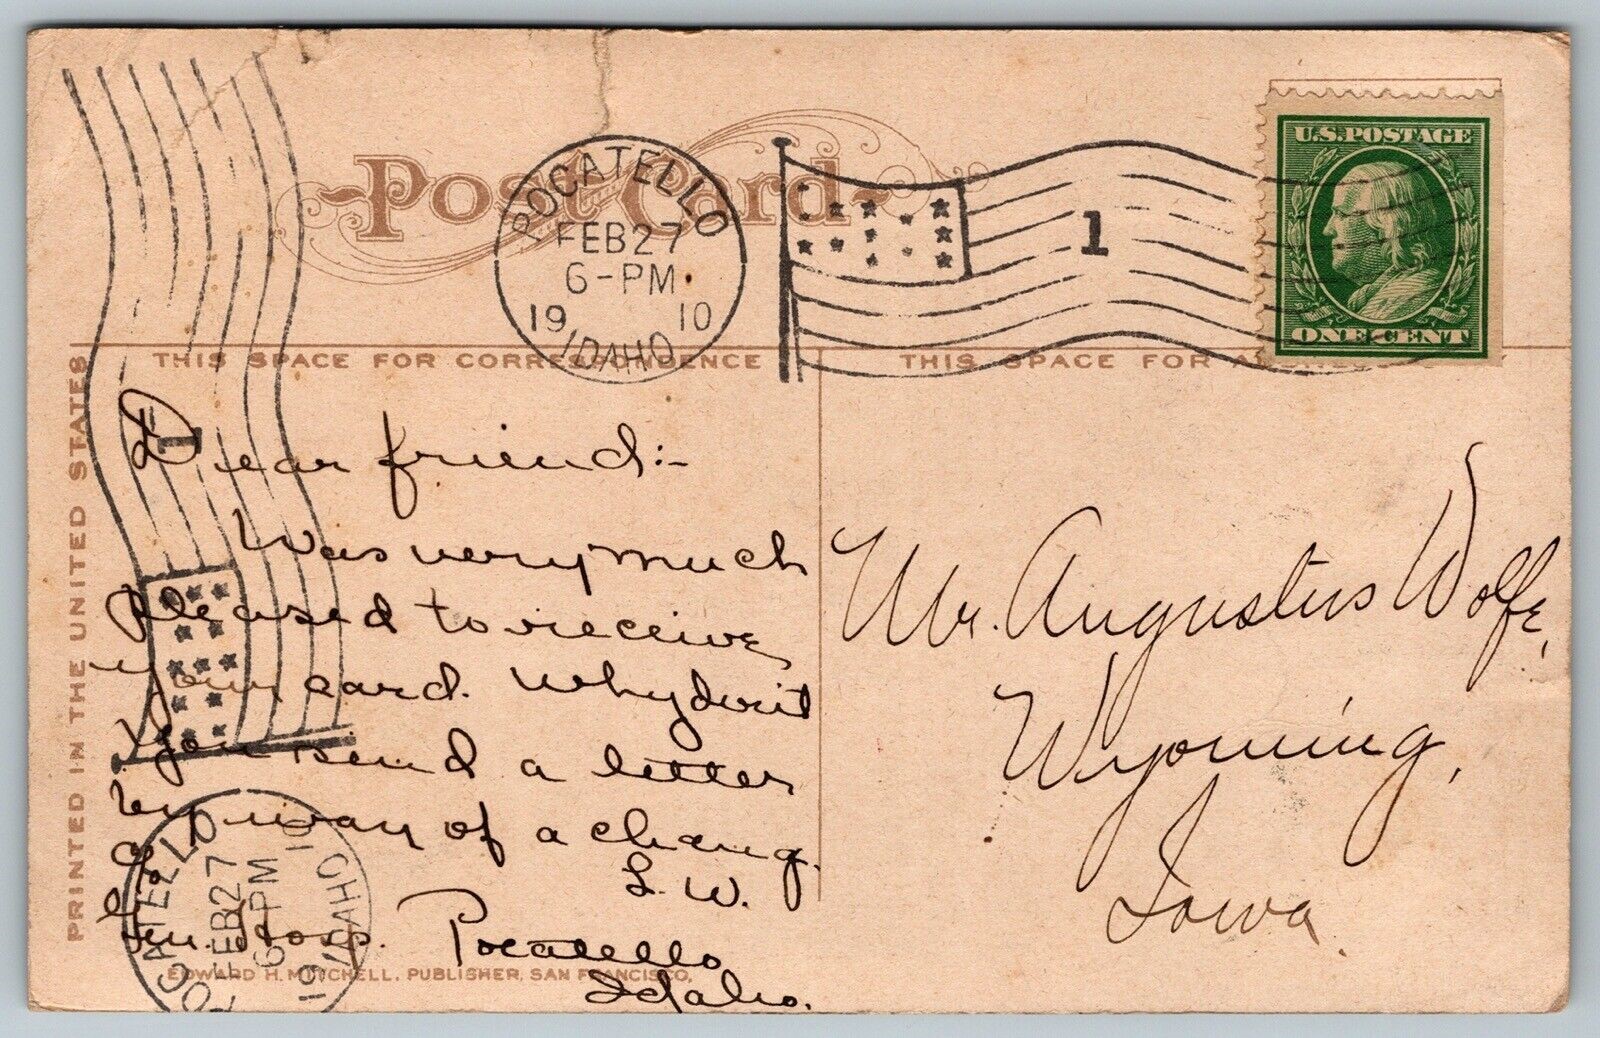 Post Card
POCATELLO
FEB 27
6-PM
19 10
IDAHO
1
U.S. POSTAGE
ONE CENT
THIS SPACE FOR CORRESPONDENCE
THIS SPACE FOR
PRINTED IN THE UNITED STATES
Dear friend:-
Was very much
pleased to receive
your card. Why don't
you send a letter
by way of a chang.
L. W.
Gen. Hosp. Pocatello
Idaho.
Mr. Augustus Wolfe,
Wyoming,
Iowa.
EDWARD H. MITCHELL, PUBLISHER, SAN FRANCISCO.
1
POCATELLO
FEB 27
6-PM
19 10
IDAHO